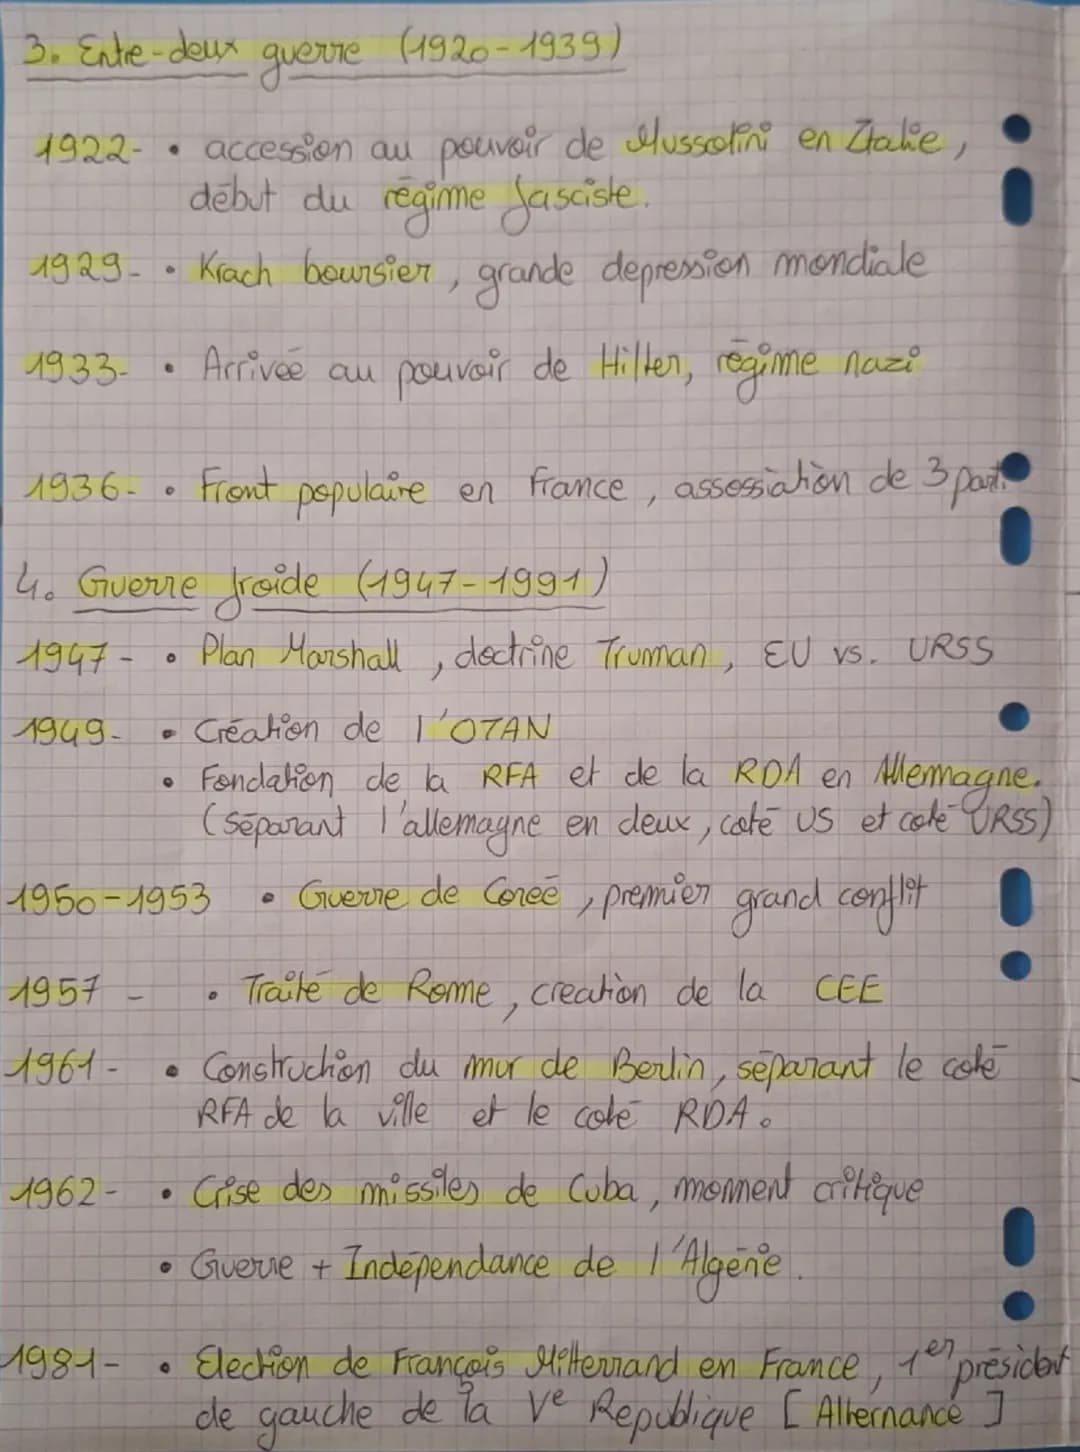 3. Entre-deux guerre (1920-1939)
1922- • accession au pouvoir de Mussolini en Italie,
début du régime fasciste.
1929- • Krach boursier, grande depression mondiale
1933- • Arrivée au pouvoir de Hilter, régime nazi
1936- • Front populaire en France, assossiation de 3 parti
4. Guerre froide (1947-1991)
1947- • Plan Marshall, doctrine Truman, EU vs. URSS
1949- • Création de l'OTAN
• Fondation de la RFA et de la RDA en Allemagne.
(séparant l'allemagne en deux, coté US et coté URSS)
1950-1953 • Guerre de Coreé, premier grand conflit
1957 - • Traité de Rome, creation de la CEE
1961- • Construction du mur de Berlin, séparant le coté
RFA de la ville et le coté RDA.
1962- • Crise des missiles de Cuba, momnent critique
• Guerre + Indépendance de l'Algérie.
1981- • Election de François Mitterrand en France, 1er président
de gauche de la Ve Republique [Alternance]